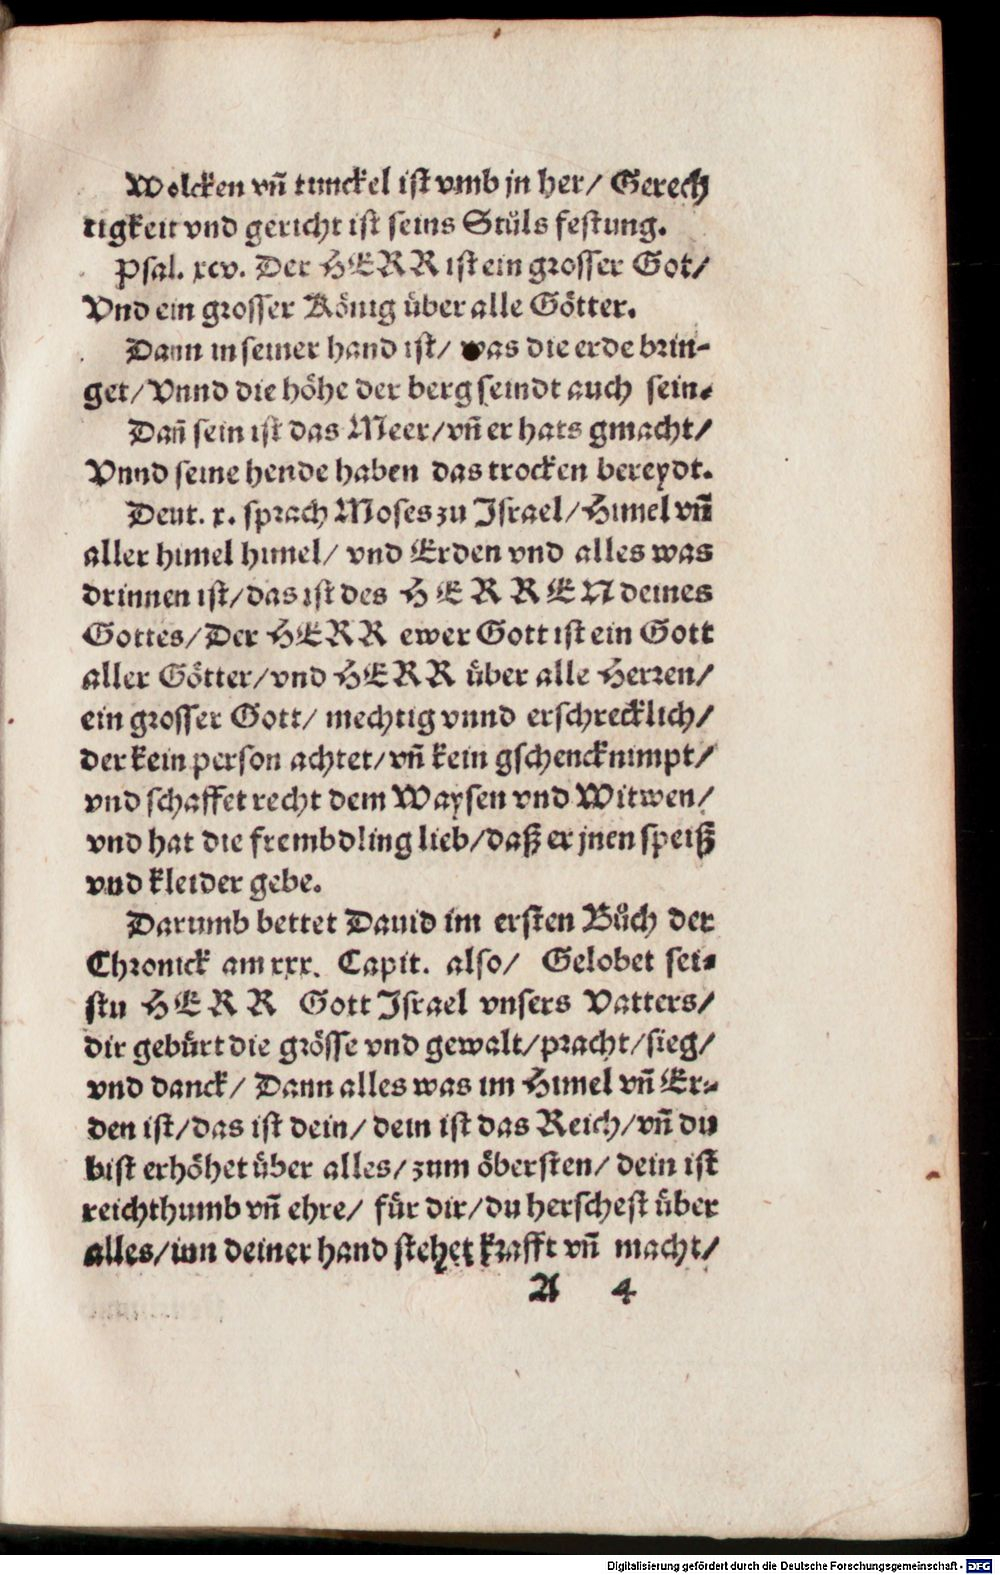 Wolcken vñ tunckel ist vmb jn her/ Gerech
tigkeit vnd gericht ist seins Stůls festung.
Psal. xcv. Der HERR ist ein grosser Got/
Vnd ein grosser König über alle Götter.
Dann in seiner hand ist/ was die erde brin-
get/ Vnnd die höhe der berg seindt auch sein.
Dañ sein ist das Meer/ vñ er hats gmacht/
Vnnd seine hende haben das trocken bereydt.
Deut. x. sprach Moses zu Israel/ Himel vñ
aller himel himel/ vnd Erden vnd alles was
drinnen ist/ das ist des HERREN deines
Gottes/ Der HERR ewer Gott ist ein Gott
aller Götter/ vnd HERR über alle Herren/
ein grosser Gott/ mechtig vnnd erschrecklich/
der kein person achtet/ vñ kein gschenck nimpt/
vnd schaffet recht dem Waysen vnd Witwen/
vnd hat die frembdling lieb/ daß er jnen speiß
vnd kleider gebe.
Darumb bettet Dauid im ersten Bůch der
Chronick am xxx. Capit. also/ Gelobet sei-
stu HERR Gott Israel vnsers Vatters/
dir gebürt die grösse vnd gewalt/ pracht/ sieg/
vnd danck/ Dann alles was im Himel vñ Er-
den ist/ das ist dein/ dein ist das Reich/ vñ du
bist erhöhet über alles/ zum öbersten/ dein ist
reichthumb vñ ehre/ für dir/ du herschest über
alles/ inn deiner hand stehet krafft vñ macht/
A 4
Digitalisierung gefördert durch die Deutsche Forschungsgemeinschaft - DFG